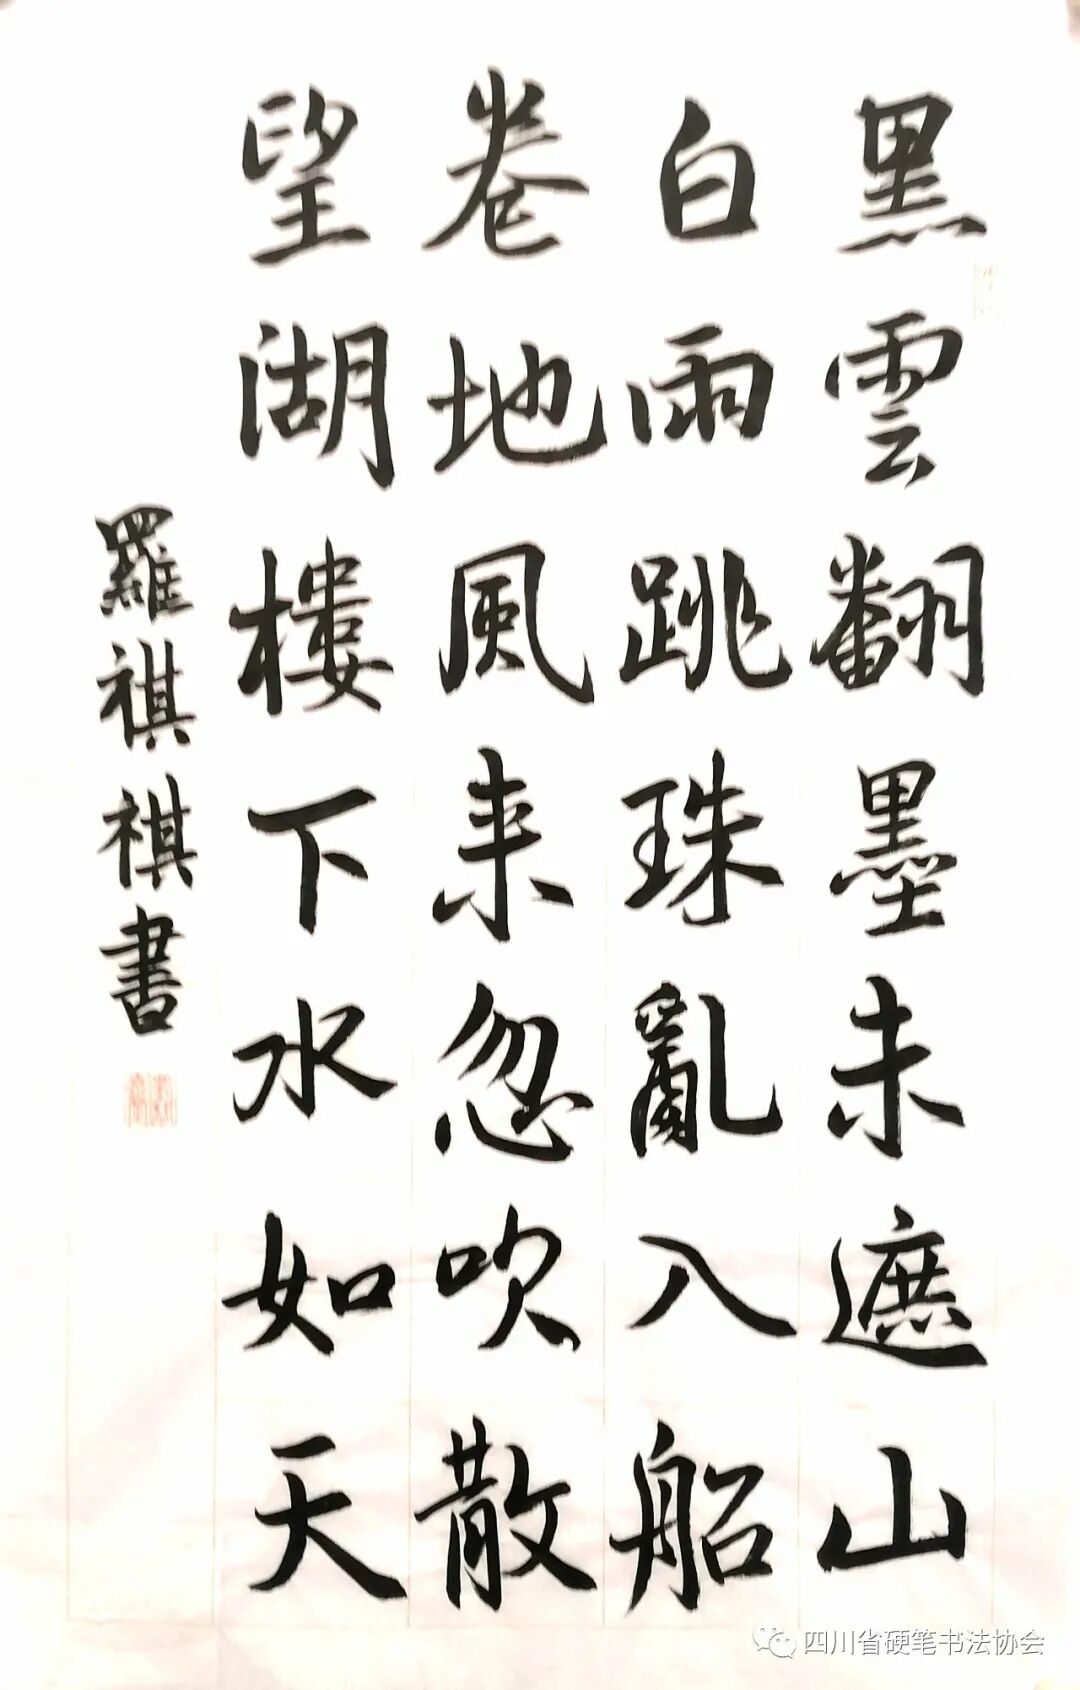 黑雲翻墨未遮山
白雨跳珠亂入船
卷地風来忽吹散
望湖樓下水如天
羅祺祺書
四川省硬笔书法协会